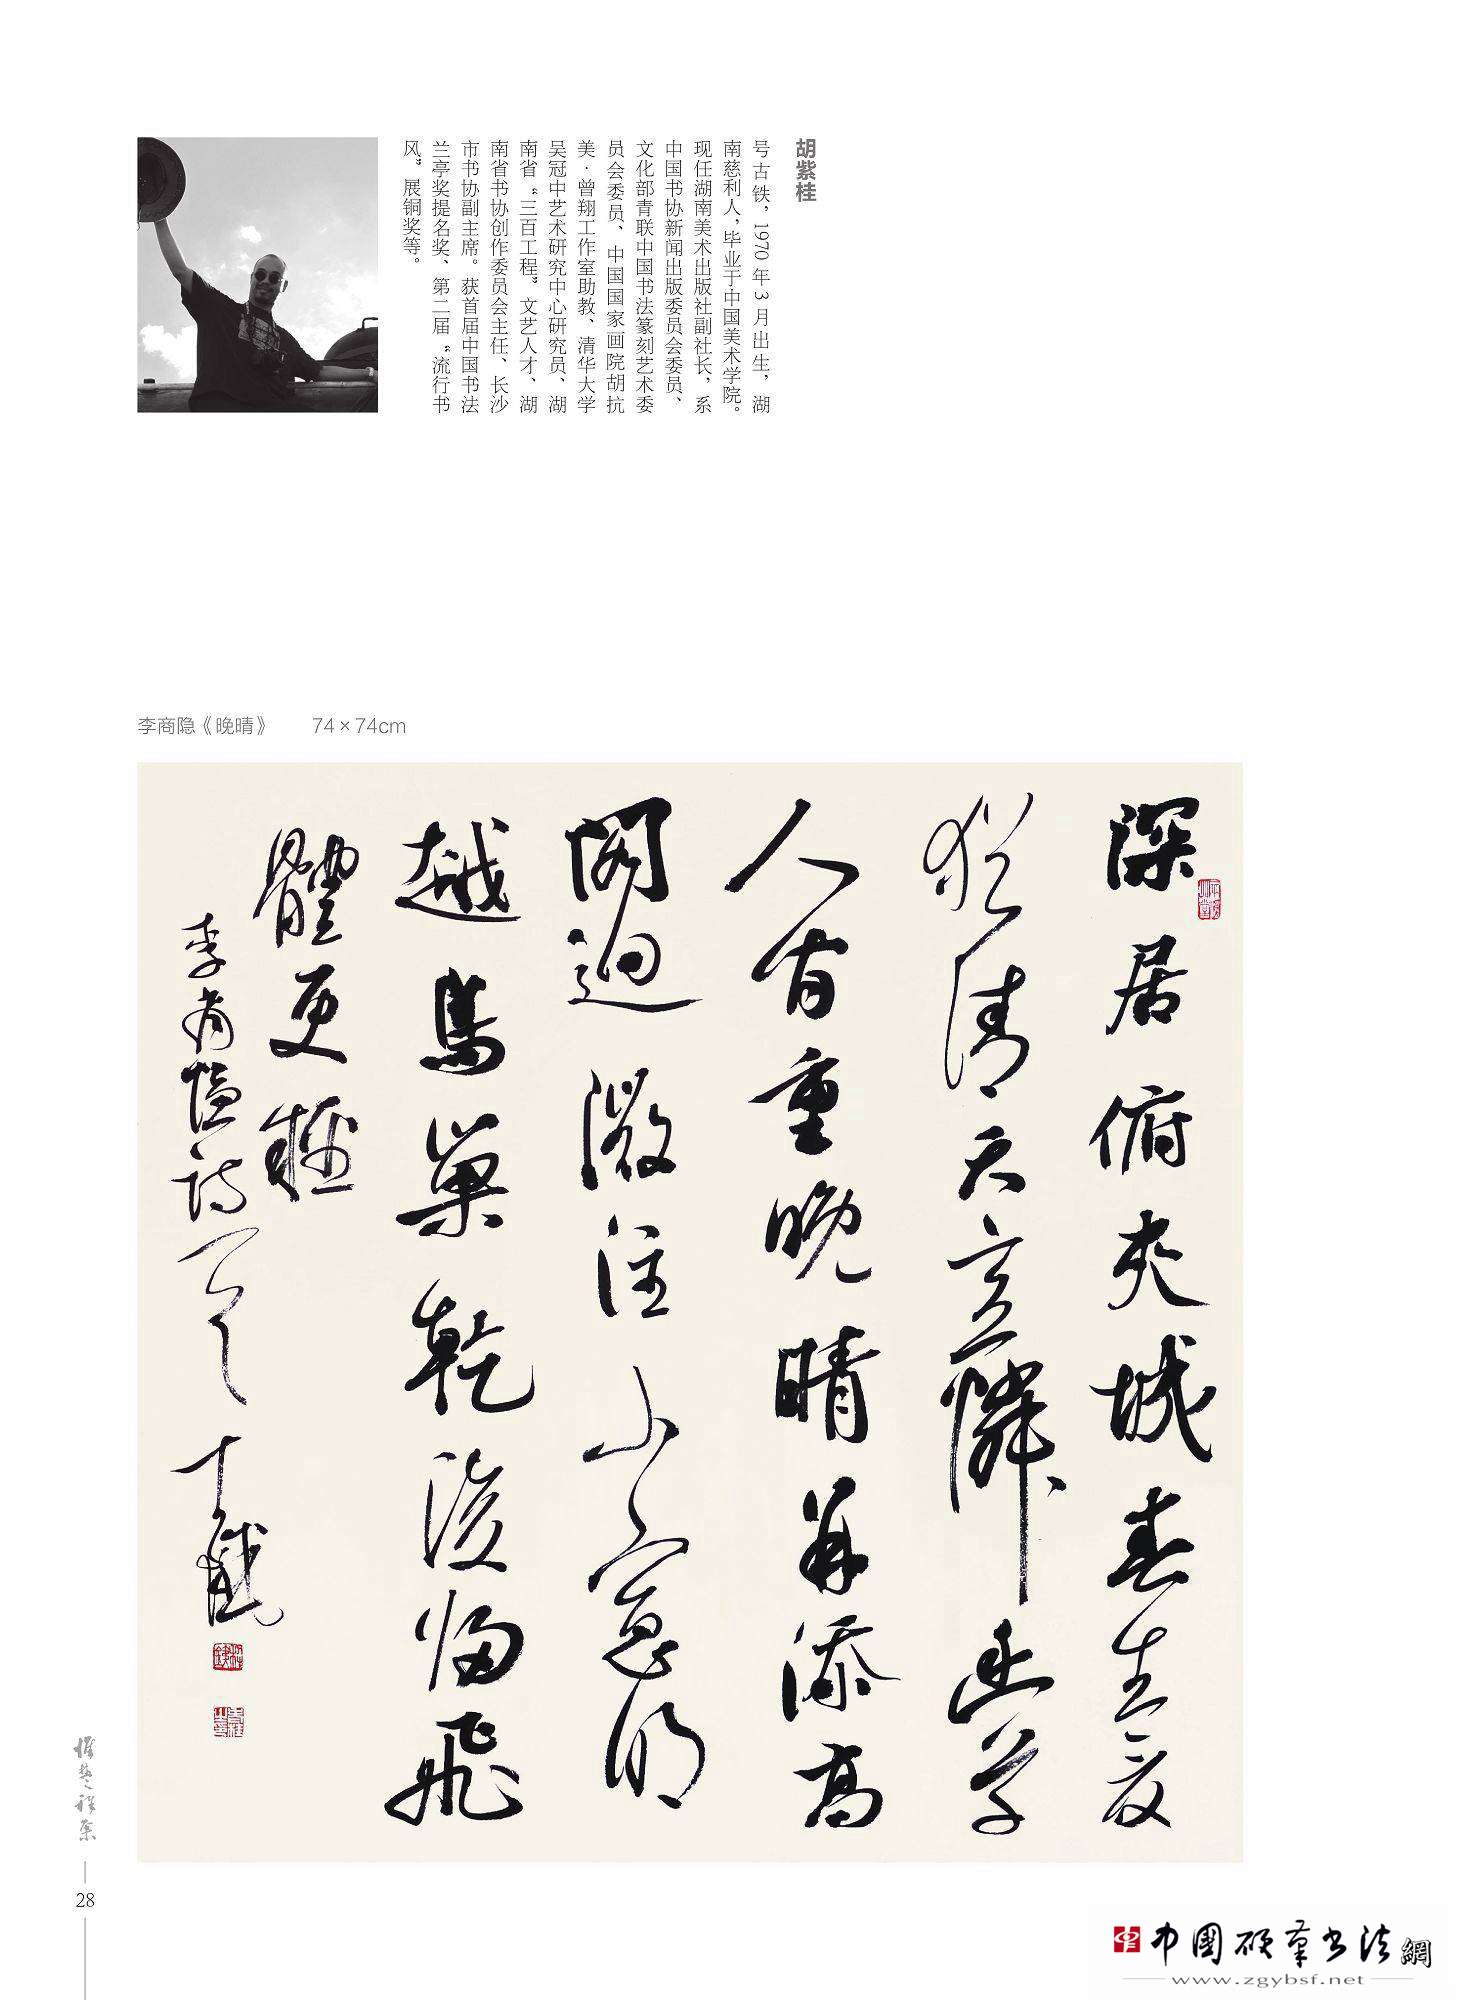 胡紫桂
号古铁，1970 年 3 月出生，湖
南慈利人，毕业于中国美术学院。
现任湖南美术出版社副社长，系
中国书协新闻出版委员会委员、
文化部青联中国书法篆刻艺术委
员会委员、中国国家画院胡抗
美·曾翔工作室助教、清华大学
吴冠中艺术研究中心研究员、湖
南省“三百工程”文艺人才、湖
南省书协创作委员会主任、长沙
市书协副主席。获首届中国书法
兰亭奖提名奖、第二届“流行书
风”展铜奖等。
李商隐《晚晴》 74×74cm
深居俯夾城春去夏
猶清天意憐幽草
人間重晚晴并添高
閣迥微注小窗明
越鳥巢乾後歸飛
體更輕
李商隱詩一首
28
中国硬笔书法網
www.zgybsf.net